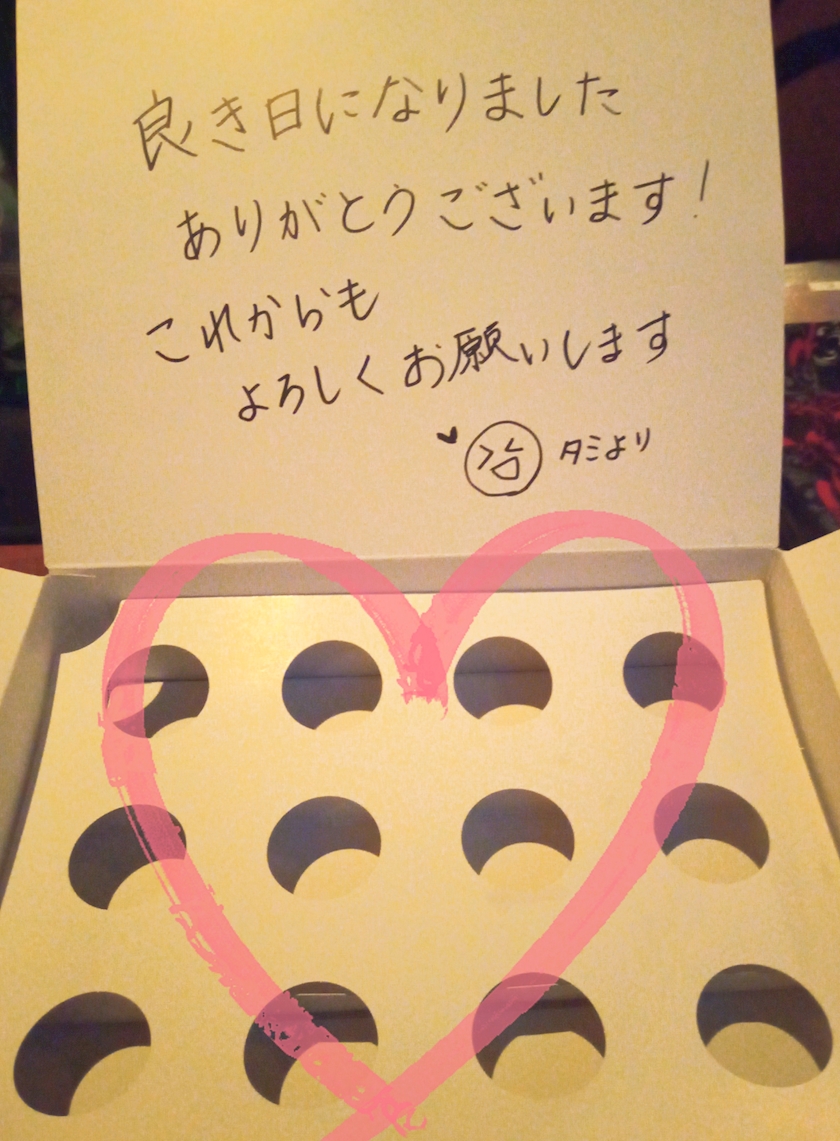 良き日になりました
ありがとうございます!
これからも
よろしくお願いします
タミより